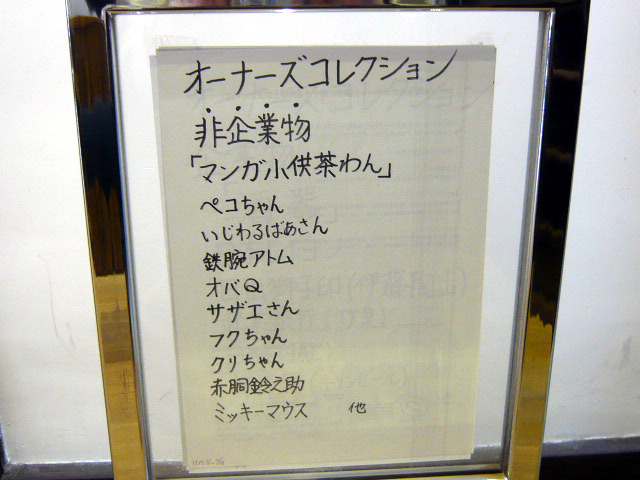 オーナーズコレクション
非企業物
「マンガ小供茶わん」
ペコちゃん
いじわるばあさん
鉄腕アトム
オバQ
サザエさん
フクちゃん
クリちゃん
赤胴鈴之助
ミッキーマウス 他